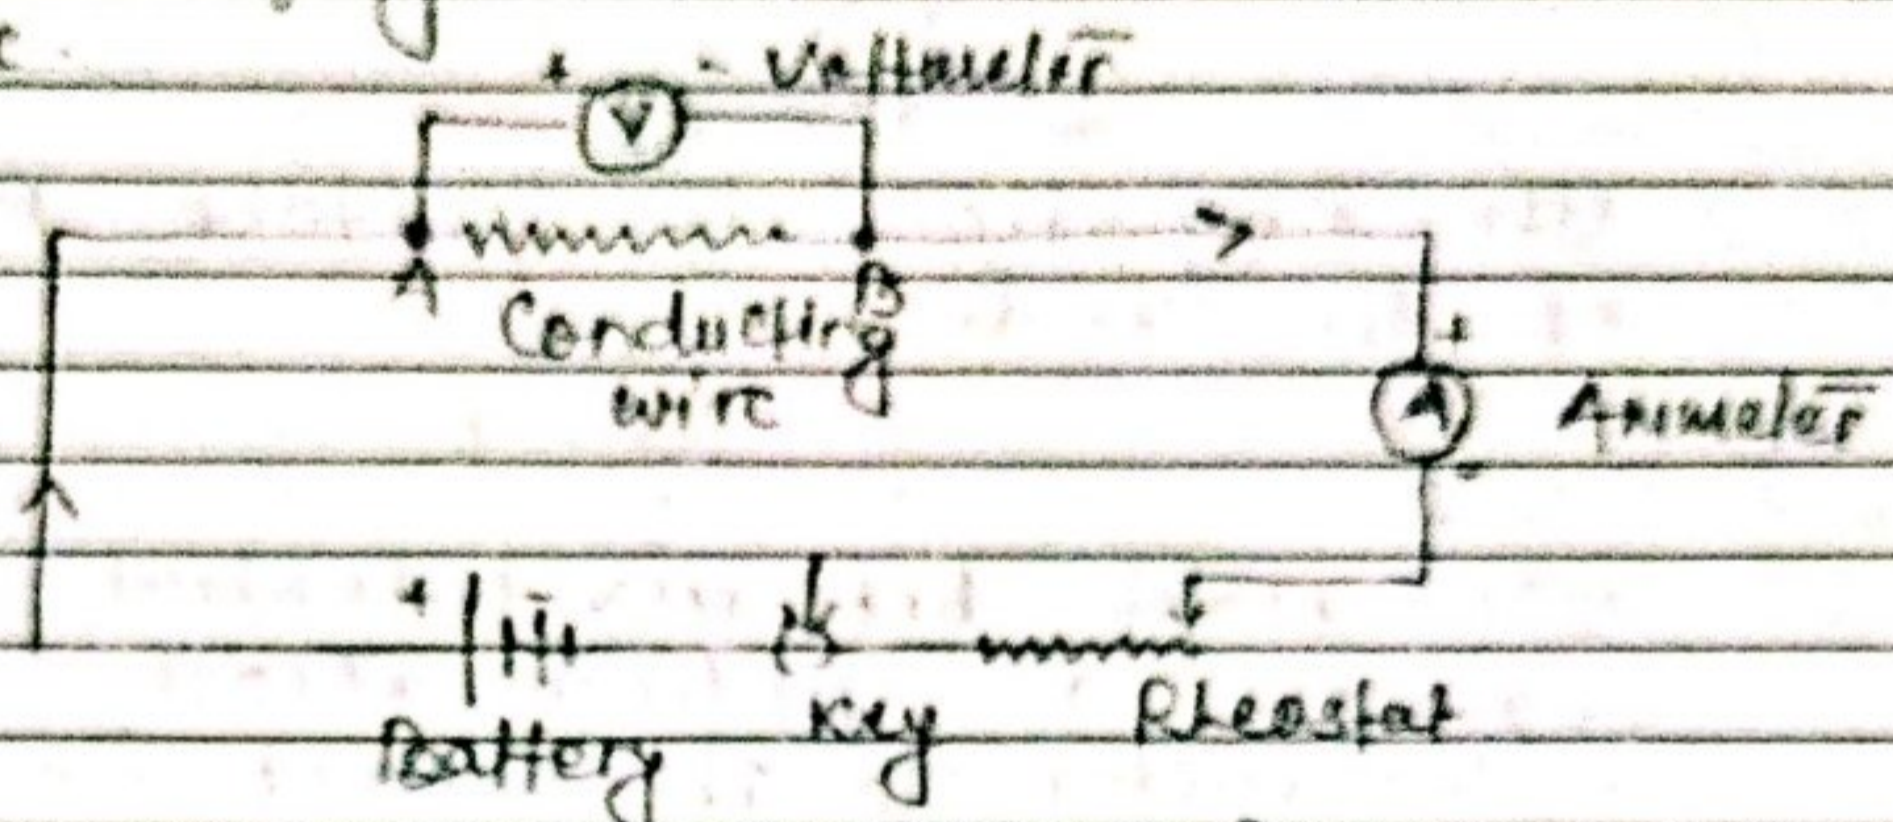 + - Voltmeter
V
A B
Conducting
wire
+
A Ammeter
-
+ -
Battery Key Rheostat